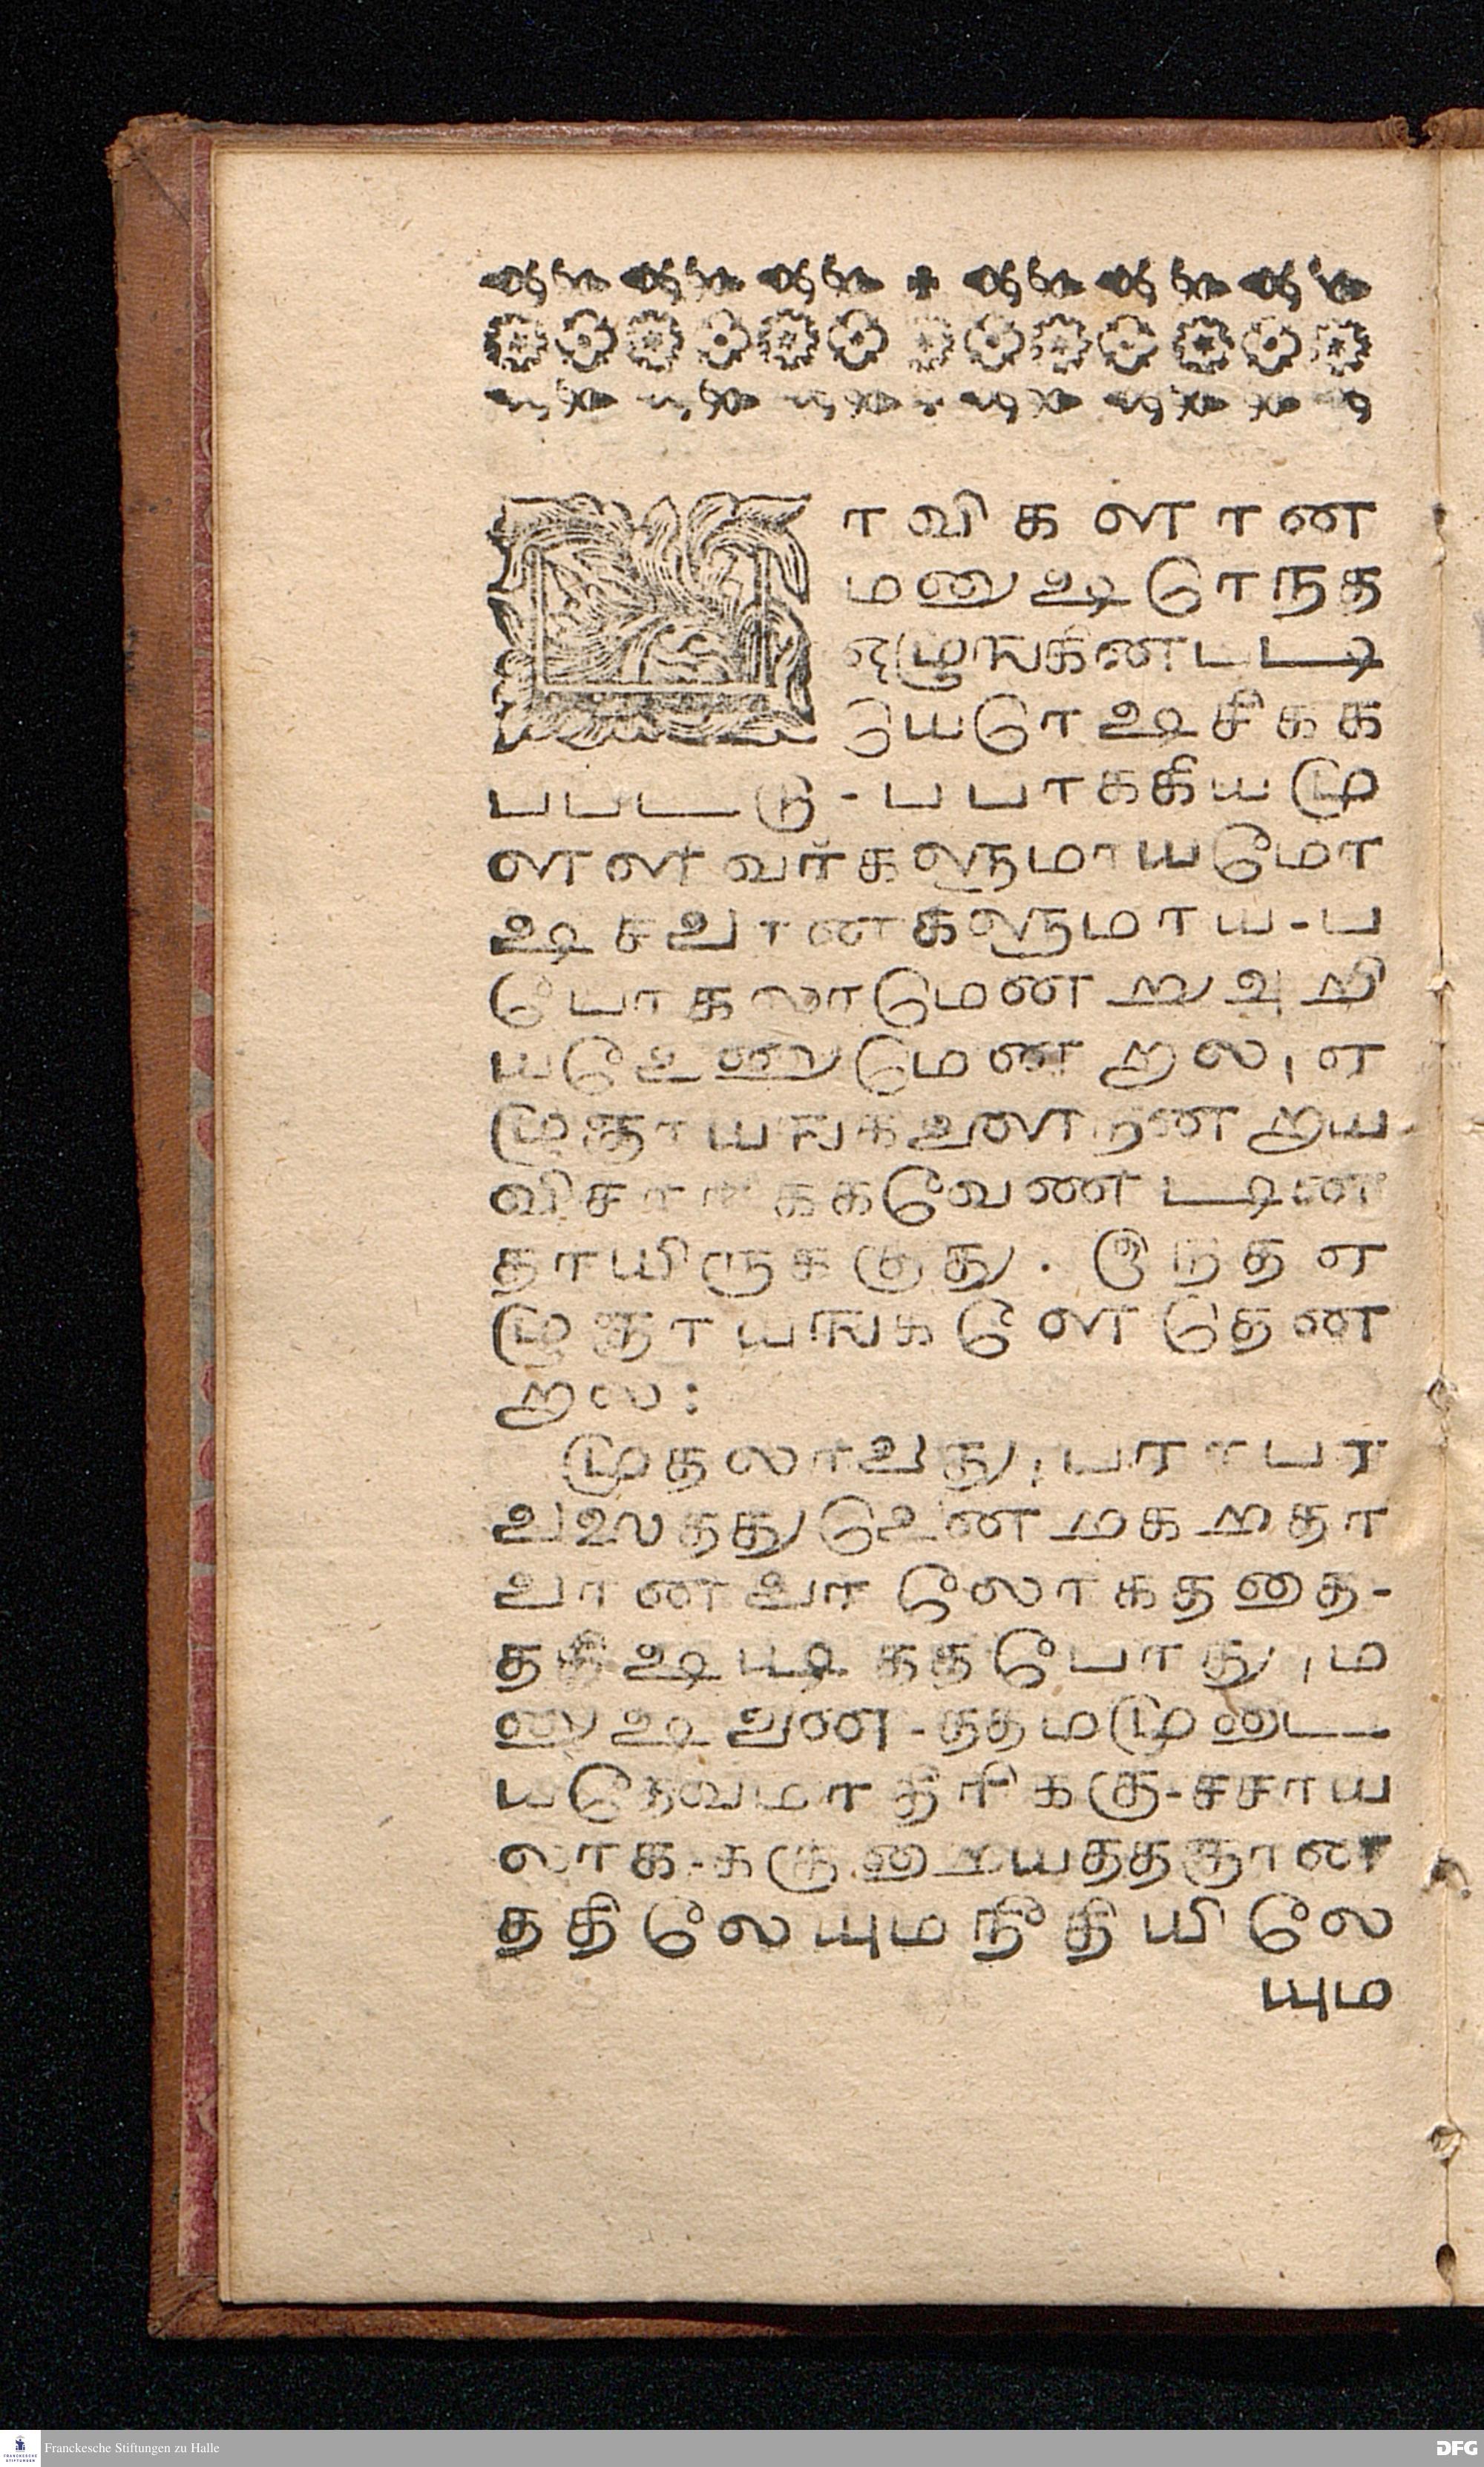 ாவிகளான
மனுஷரொநத
ஒழுங்கினபடி
யெரெஷிசிகக
பபடடு-பபாககியமு
ளளவர்களுமாயமோ
ஷசவானகளுமாய-ப
போகலாமெனறுஅறி
யவெணுமெனறல, எ
முஞாயஙகளைநனறய
விசாரிககவேணடின
தாயிருககுது. இநத எ
முஞாயஙகளேதென
றல:
முதலாவது, பராபர
வஸதுவெனகிறதா
வானவர லோகததை-
தகிஷடிததபோது, ம
னுஷவன-ததமமுடை
யதேவமாதிரிககு-சசாய
லாக-ககுமையததஞான
ததிலேயுமநீதியிலே
யும
Franckesche Stiftungen zu Halle
DFG